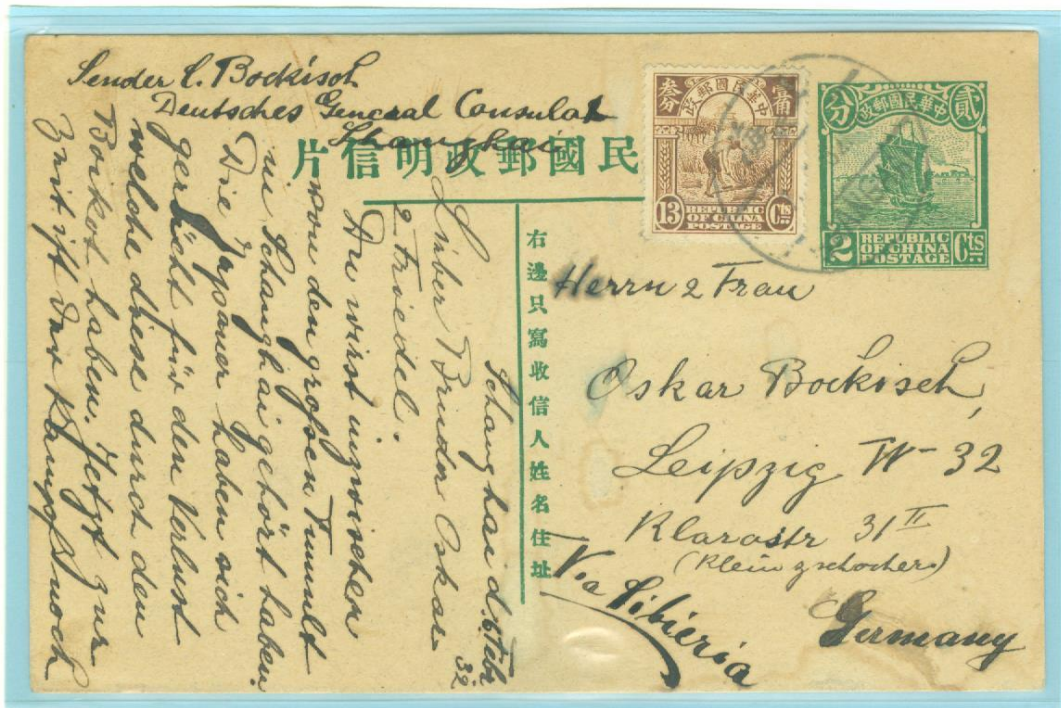 Sender C. Bockisch
Deutsches General Consulat
Shanghai
民國郵政明信片
叁分 中華民國郵政 壹角
13 REPUBLIC OF CHINA POSTAGE Cts
分 中華民國郵政 貳
2 REPUBLIC OF CHINA POSTAGE Cts
右邊只寫收信人姓名住址
Herrn & Frau
Oskar Bockisch,
Leipzig W-32
Klarastr 31 II
(Kleinzschocher)
Germany
Via Sibieria
Schanghai d. 6 Feb.
32.
Lieber Bruder Oskar
& Friedel.
Du wirst inzwischen
von den großen Tumult
in Schanghai gehört haben.
Die Japaner haben sich
gerächt für den Verlust
welche diese durch den
Boikot haben. Jetzt zur
Zeit ist der Kampf noch